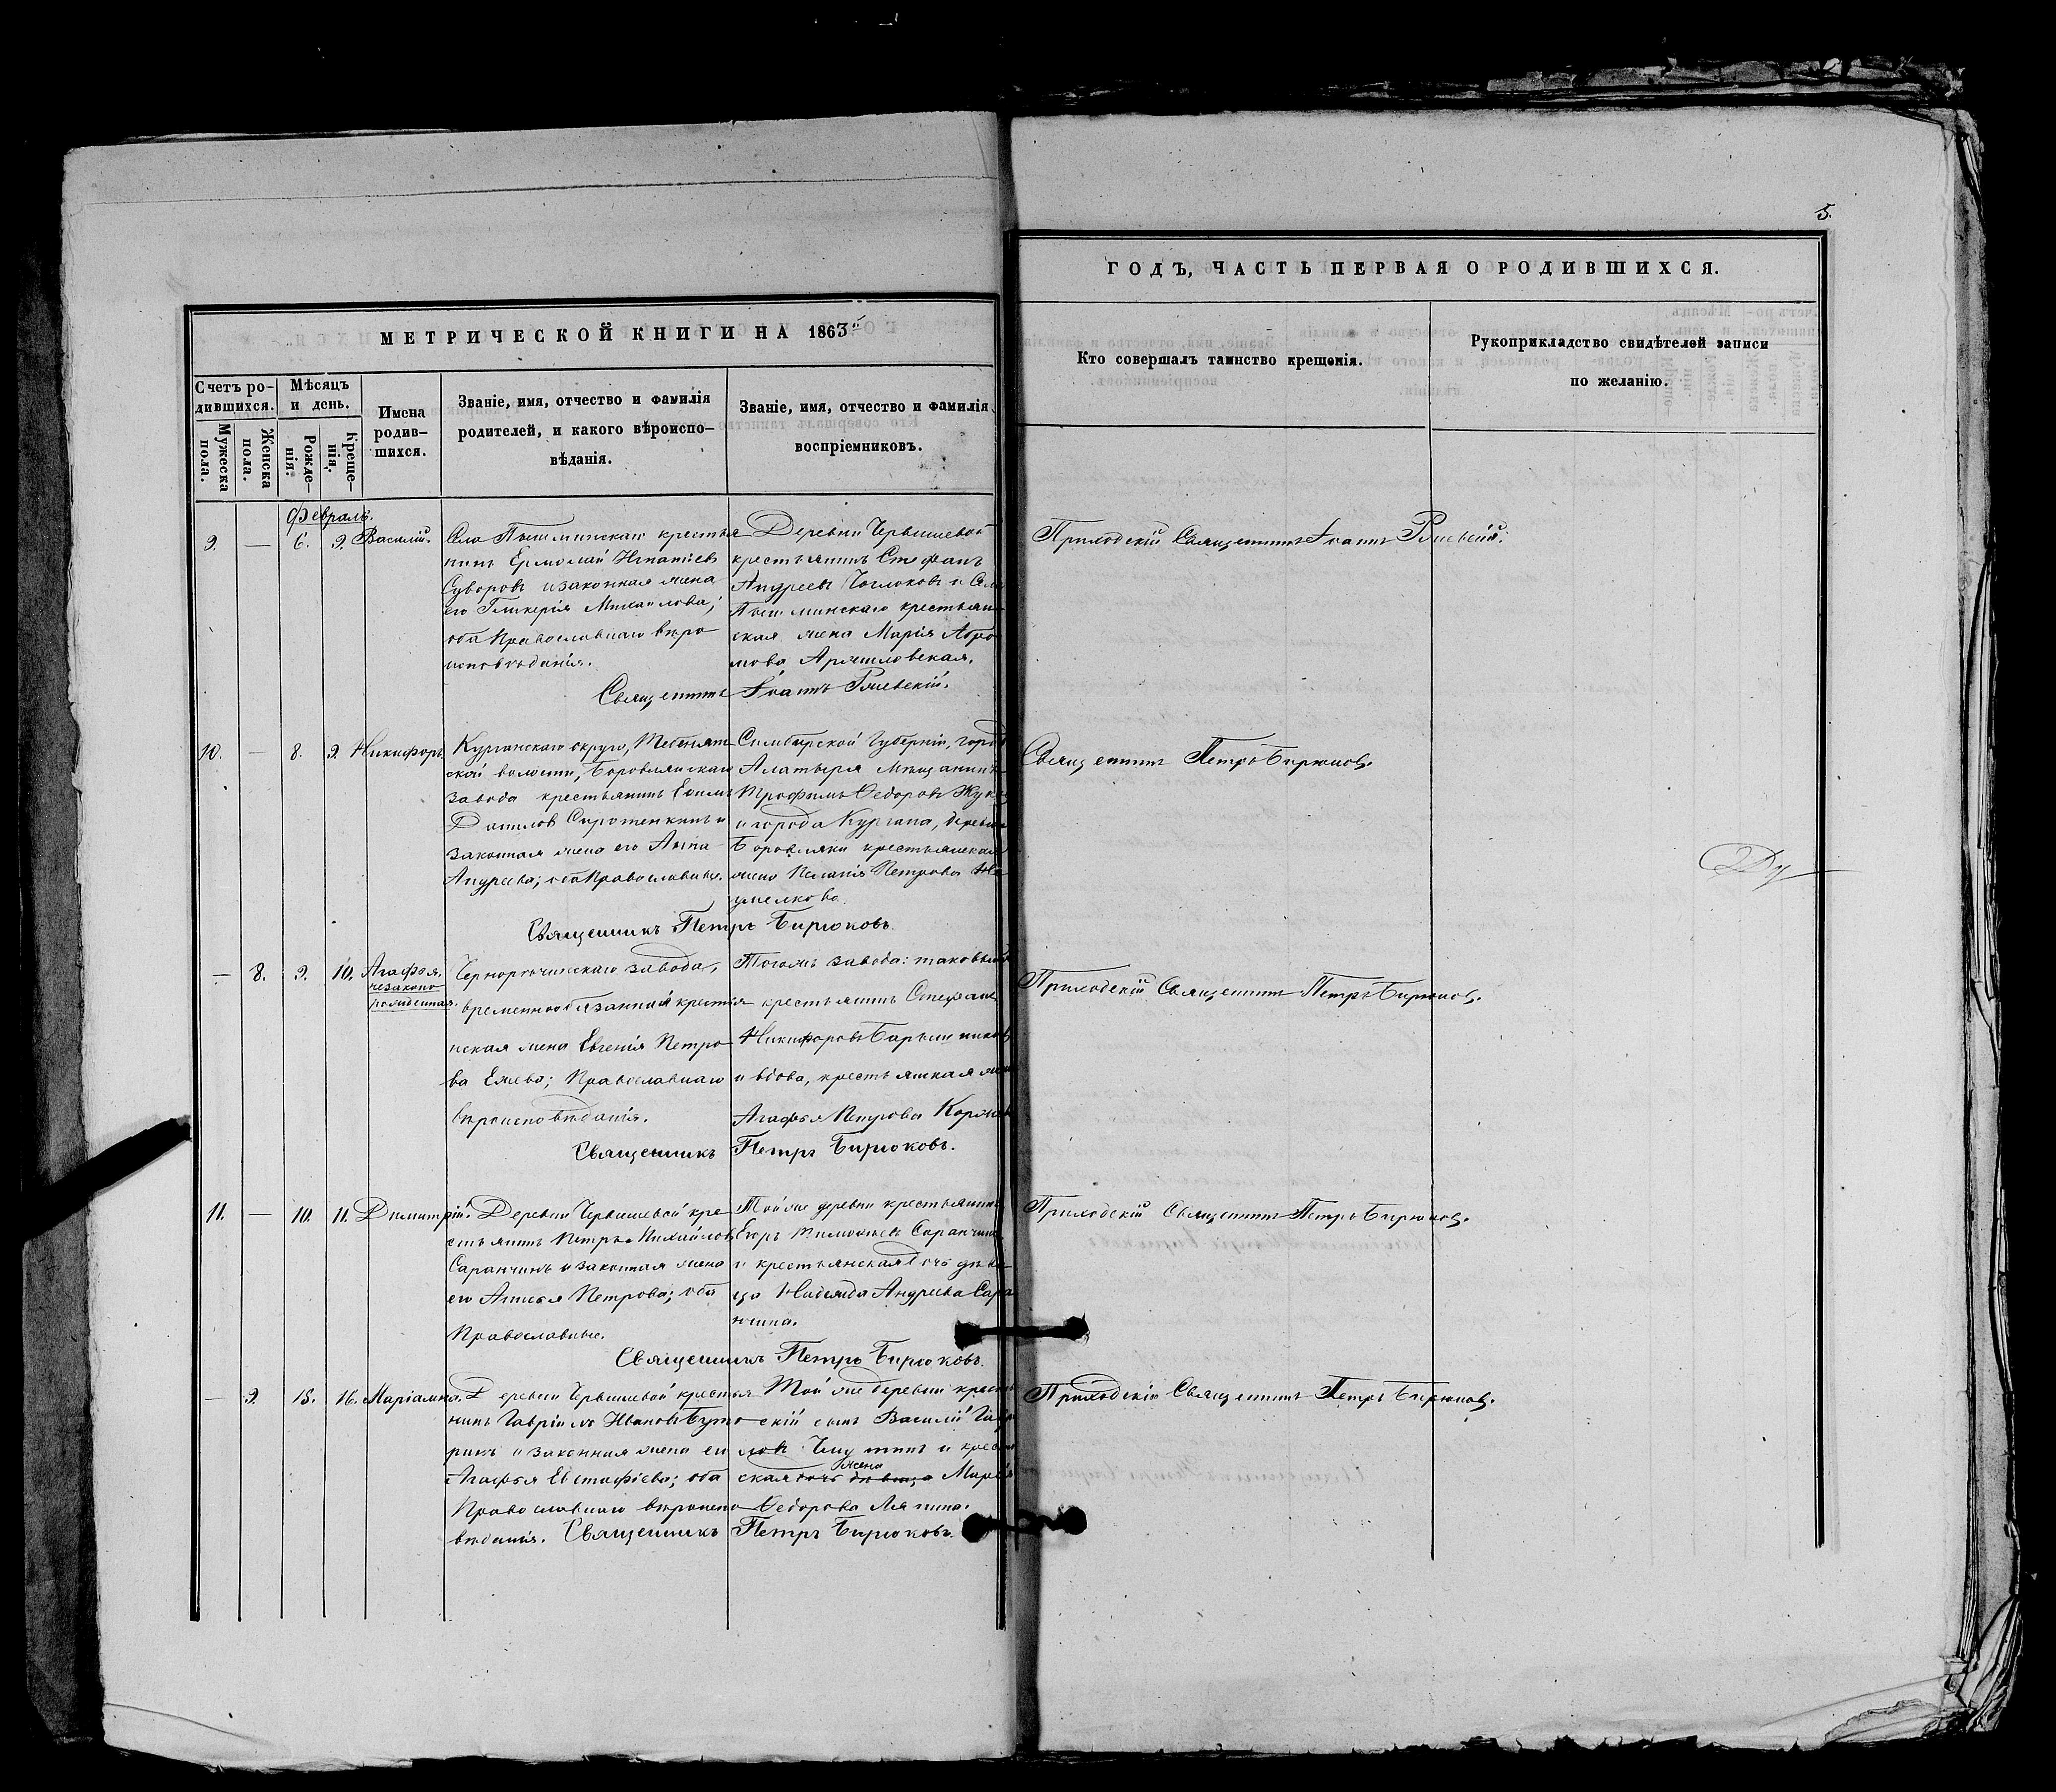 5.
МЕТРИЧЕСКОЙ КНИГИ НА 1863й
ГОДЪ, ЧАСТЬ ПЕРВАЯ О РОДИВШИХСЯ.
Счетъ ро-
дившихся.
Мужеска
пола.
Женска
пола.
Мѣсяцъ
и день.
Рожде-
нія.
Креще-
нія.
Имена
родив-
шихся.
Званіе, имя, отчество и фамилія
родителей, и какого вѣроиспо-
вѣданія.
Званіе, имя, отчество и фамилія
воспріемниковъ.
Кто совершалъ таинство крещенія.
Рукоприкладство свидѣтелей записи
по желанію.
Февраль.
9. — 6. 9. Василій.
Села Пышминскаго крестья
нинъ Ермолай Игнатіевъ
Суворовъ и законная жена
его Гликерія Михаилова;
оба Православнаго вѣро
исповѣданія.
Деревни Червишевой
крестьянинъ Стефанъ
Андреевъ и Села
Пышминскаго крестьян
ская жена Марія
мова
Священникъ Іоаннъ Ряжевскій.
Приходскій Священникъ Іоаннъ
10. — 8. 9. Никифоръ.
Курганскаго округа,
ской волости, Боровлянскаго
завода крестьянинъ Ефимъ
Даниловъ Сиротенкинъ и
законная жена его Анна
Андреева; оба Православные.
Симбирской Губерніи, город
Алатыря Мѣщанинъ
Трофимъ Ѳедоровъ
и города Кургана, деревни
Боровлянки крестьянская
жена Пелагія Петрова
Священникъ Петръ Бирюковъ.
Священникъ Петръ Бирюковъ.
— 8. 9. 10. Агафья.
незаконо
рожденная.
Чернорѣчинскаго завода,
временнообязанная крестья
нская жена Евгенія Петро
ва Ежева; Православнаго
вѣроисповѣданія.
Тогожъ завода: таковый
крестьянинъ Стефанъ
Никифоровъ Барышников
и вдова, крестьянская жен
Агафья Петрова
Священникъ Петръ Бирюковъ.
Приходскій Священникъ Петръ Бирюковъ.
11. — 10. 11. Димитрій.
Деревни Червишевой кре
стьянинъ Петръ Михайловъ
Саранчинъ и законная жена
его Агнія Петрова; оба
Православные.
Той же деревни крестьянинъ
Егоръ Тимофеевъ Саранчинъ
и крестьянская дочь дѣви
ца Надежда Андреева Сара
нчина.
Священникъ Петръ Бирюковъ.
Приходскій Священникъ Петръ Бирюковъ.
— 9. 15. 16. Маріамна.
Деревни Червишевой крестья
нинъ Гавріилъ Ивановъ
ринъ и законная жена его
Агафья Евстафіева; оба
Православнаго вѣроиспо
вѣданія.
Той же деревни крестья
скій сынъ Василій Гаври
ловъ и крестьян
жена
ская дочь дѣвица Марія
Ѳедорова Ляпина.
Священникъ Петръ Бирюковъ.
Приходскій Священникъ Петръ Бирюковъ.